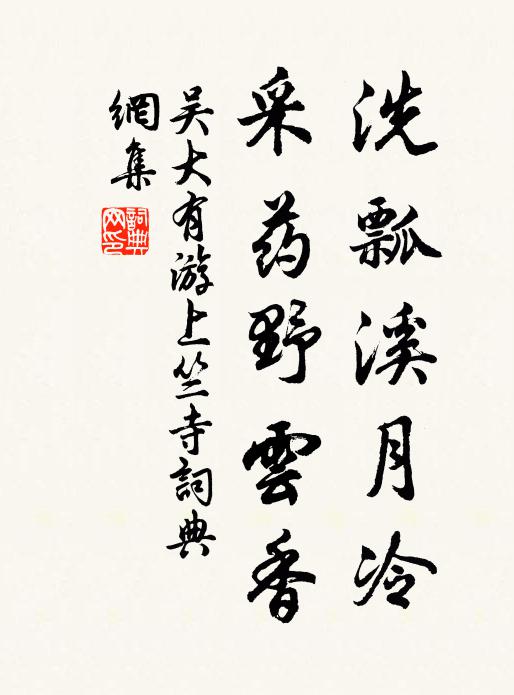 洗瓢溪月冷
采药野雲香
吴大有游上竺寺詞典
網集
詞典网印